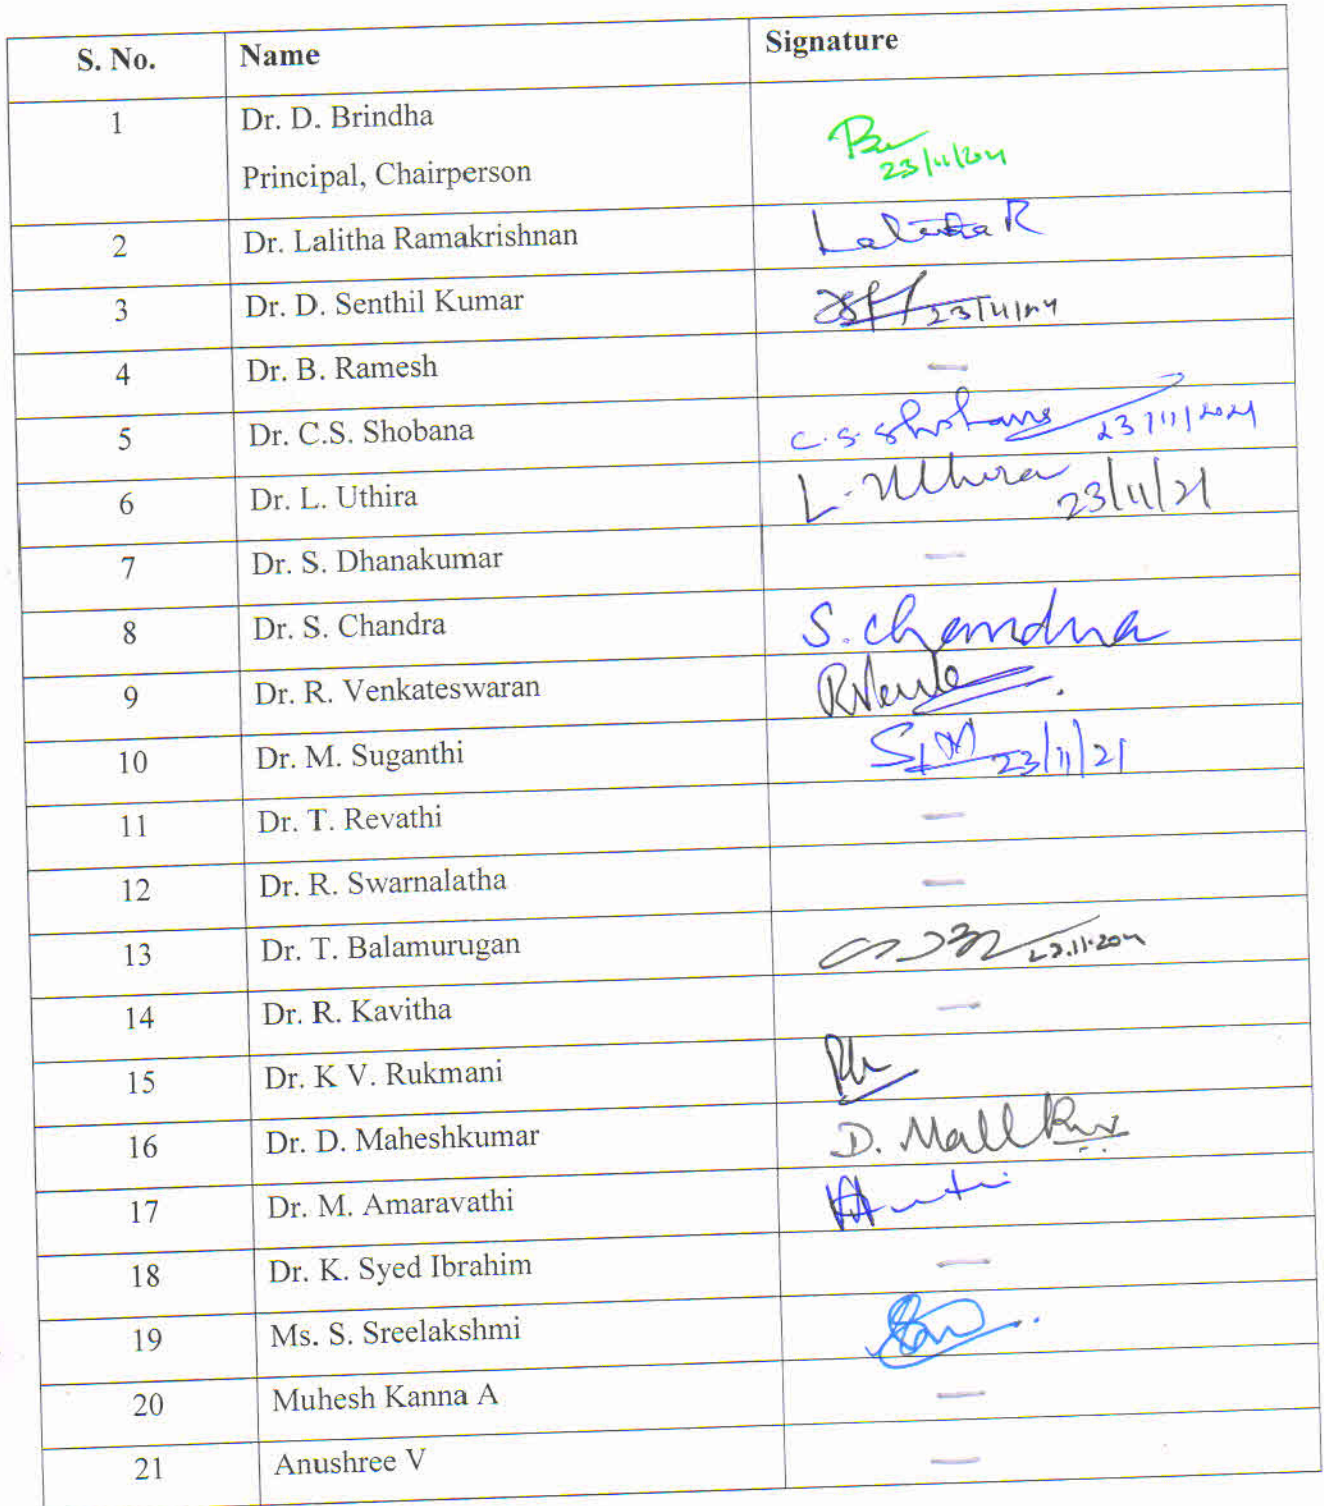 S. No. Name Signature
1 Dr. D. Brindha
Principal, Chairperson
23/11/2021
2 Dr. Lalitha Ramakrishnan Lalitha R
3 Dr. D. Senthil Kumar 23/11/21
4 Dr. B. Ramesh —
5 Dr. C.S. Shobana C.S. Shobana 23/11/2021
6 Dr. L. Uthira L. Uthira 23/11/21
7 Dr. S. Dhanakumar —
8 Dr. S. Chandra S. Chandra
9 Dr. R. Venkateswaran
10 Dr. M. Suganthi 23/11/21
11 Dr. T. Revathi —
12 Dr. R. Swarnalatha —
13 Dr. T. Balamurugan 23.11.2021
14 Dr. R. Kavitha —
15 Dr. K V. Rukmani
16 Dr. D. Maheshkumar D.
17 Dr. M. Amaravathi
18 Dr. K. Syed Ibrahim —
19 Ms. S. Sreelakshmi
20 Muhesh Kanna A —
21 Anushree V —